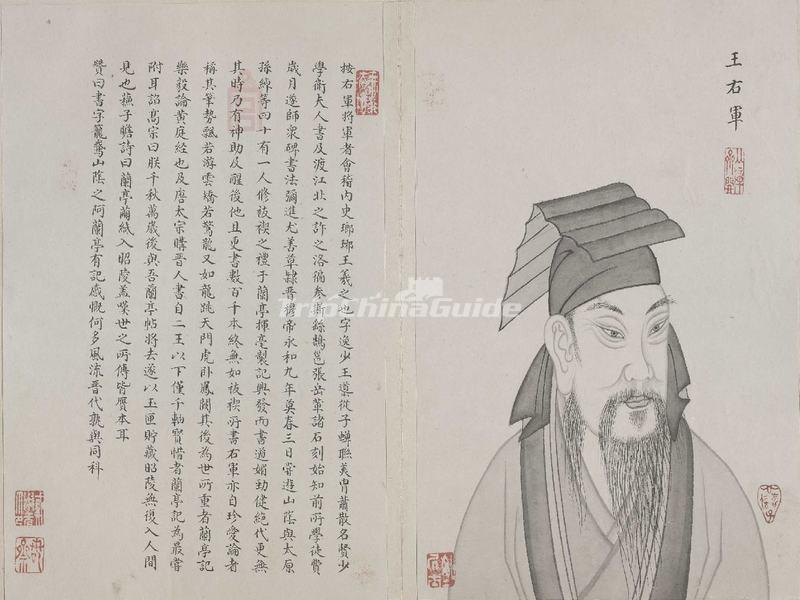 王右軍
按右軍將軍者會稽內史瑯琊王羲之也字逸少王導從子蟬聯美冑蕭散名賢少
學衛夫人書及渡江北之許之洛徧參斯鵠邕張岳華諸石刻始知前所學徒費
歲月遂師眾碑書法彌進尤善草隸晉穆帝永和九年莫春三日嘗遊山陰與太原
孫綽等四十有一人修祓禊之禮于蘭亭揮毫製記興發而書遒媚勁健絕代更無
其時乃有神助及醒後他日更書數百千本終無如祓禊所書右軍亦自珍愛論者
稱其筆勢飄若游雲矯若驚龍又如龍跳天門虎臥鳳闕其後為世所重者蘭亭記
樂毅論黃庭經也及唐太宗購晉人書自二王以下僅千軸寶惜者蘭亭記為最嘗
附耳語高宗曰朕千秋萬歲後與吾蘭亭帖將去遂以玉匣貯藏昭陵無復入人間
見也蘇子瞻詩曰蘭亭繭紙入昭陵蓋嘆世之所傳皆贗本耳
贊曰書字籠鵝山陰之阿蘭亭有記感慨何多風流晉代孰與同科
TripChinaGuide